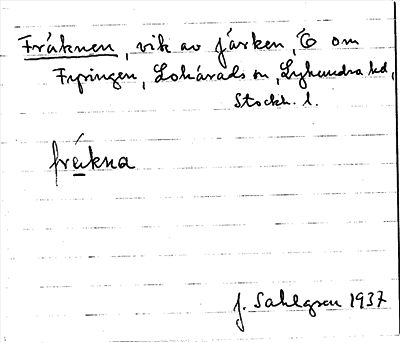 Fråknen, vik av Järken, Ö om
Fypingen, Lohärads sn, Lyhundra hd,
Stockh. l.
fråkna
J. Sahlgren 1937